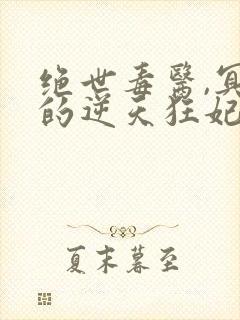 绝世毒醫,冥
的逆天狂妃
夏末暮至